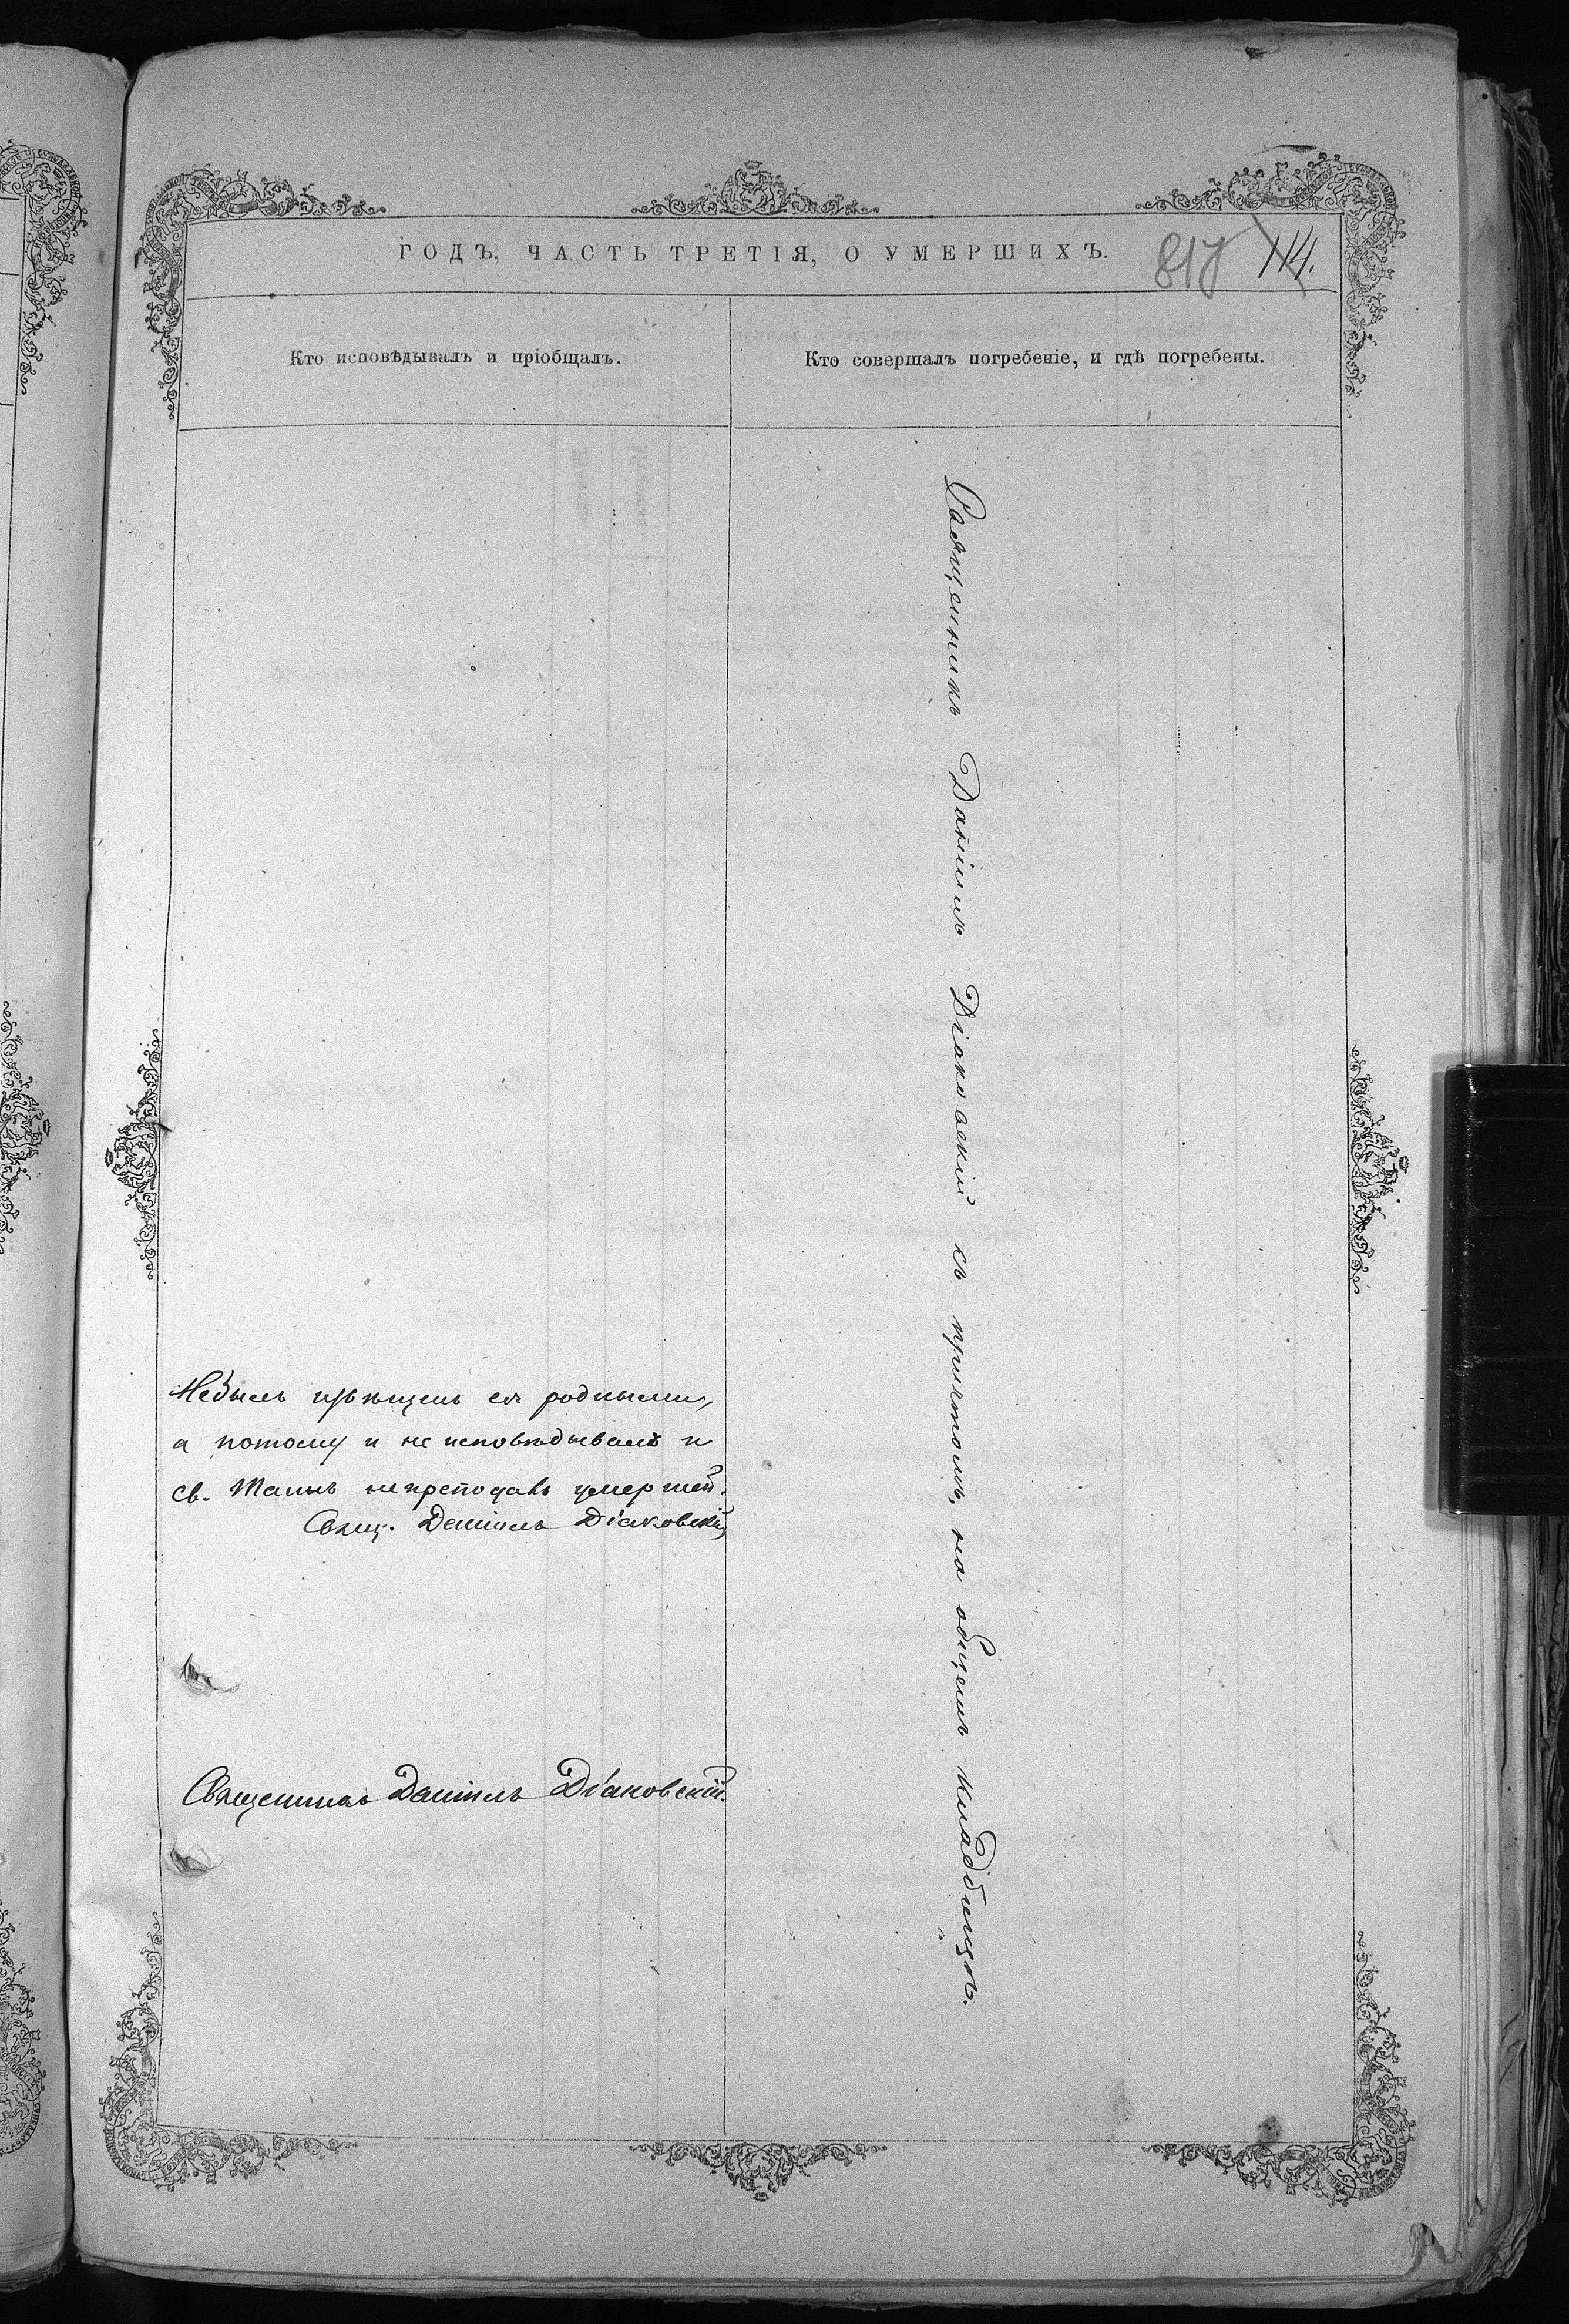 ГОДЪ, ЧАСТЬ ТРЕТІЯ, О УМЕРШИХЪ.
817 114.
Кто исповѣдывалъ и пріобщалъ.
Кто совершалъ погребеніе, и гдѣ погребены.
Небылъ извѣщенъ ея родными,
а потому и не исповѣдывалъ и
св. Таинъ непреподавъ умершей.
Свящ. Даніилъ Діаковскій
Священникъ Даніилъ Діаковскій.
Священникъ Даніилъ Діаковскій съ причтомъ, на общемъ кладбищѣ.